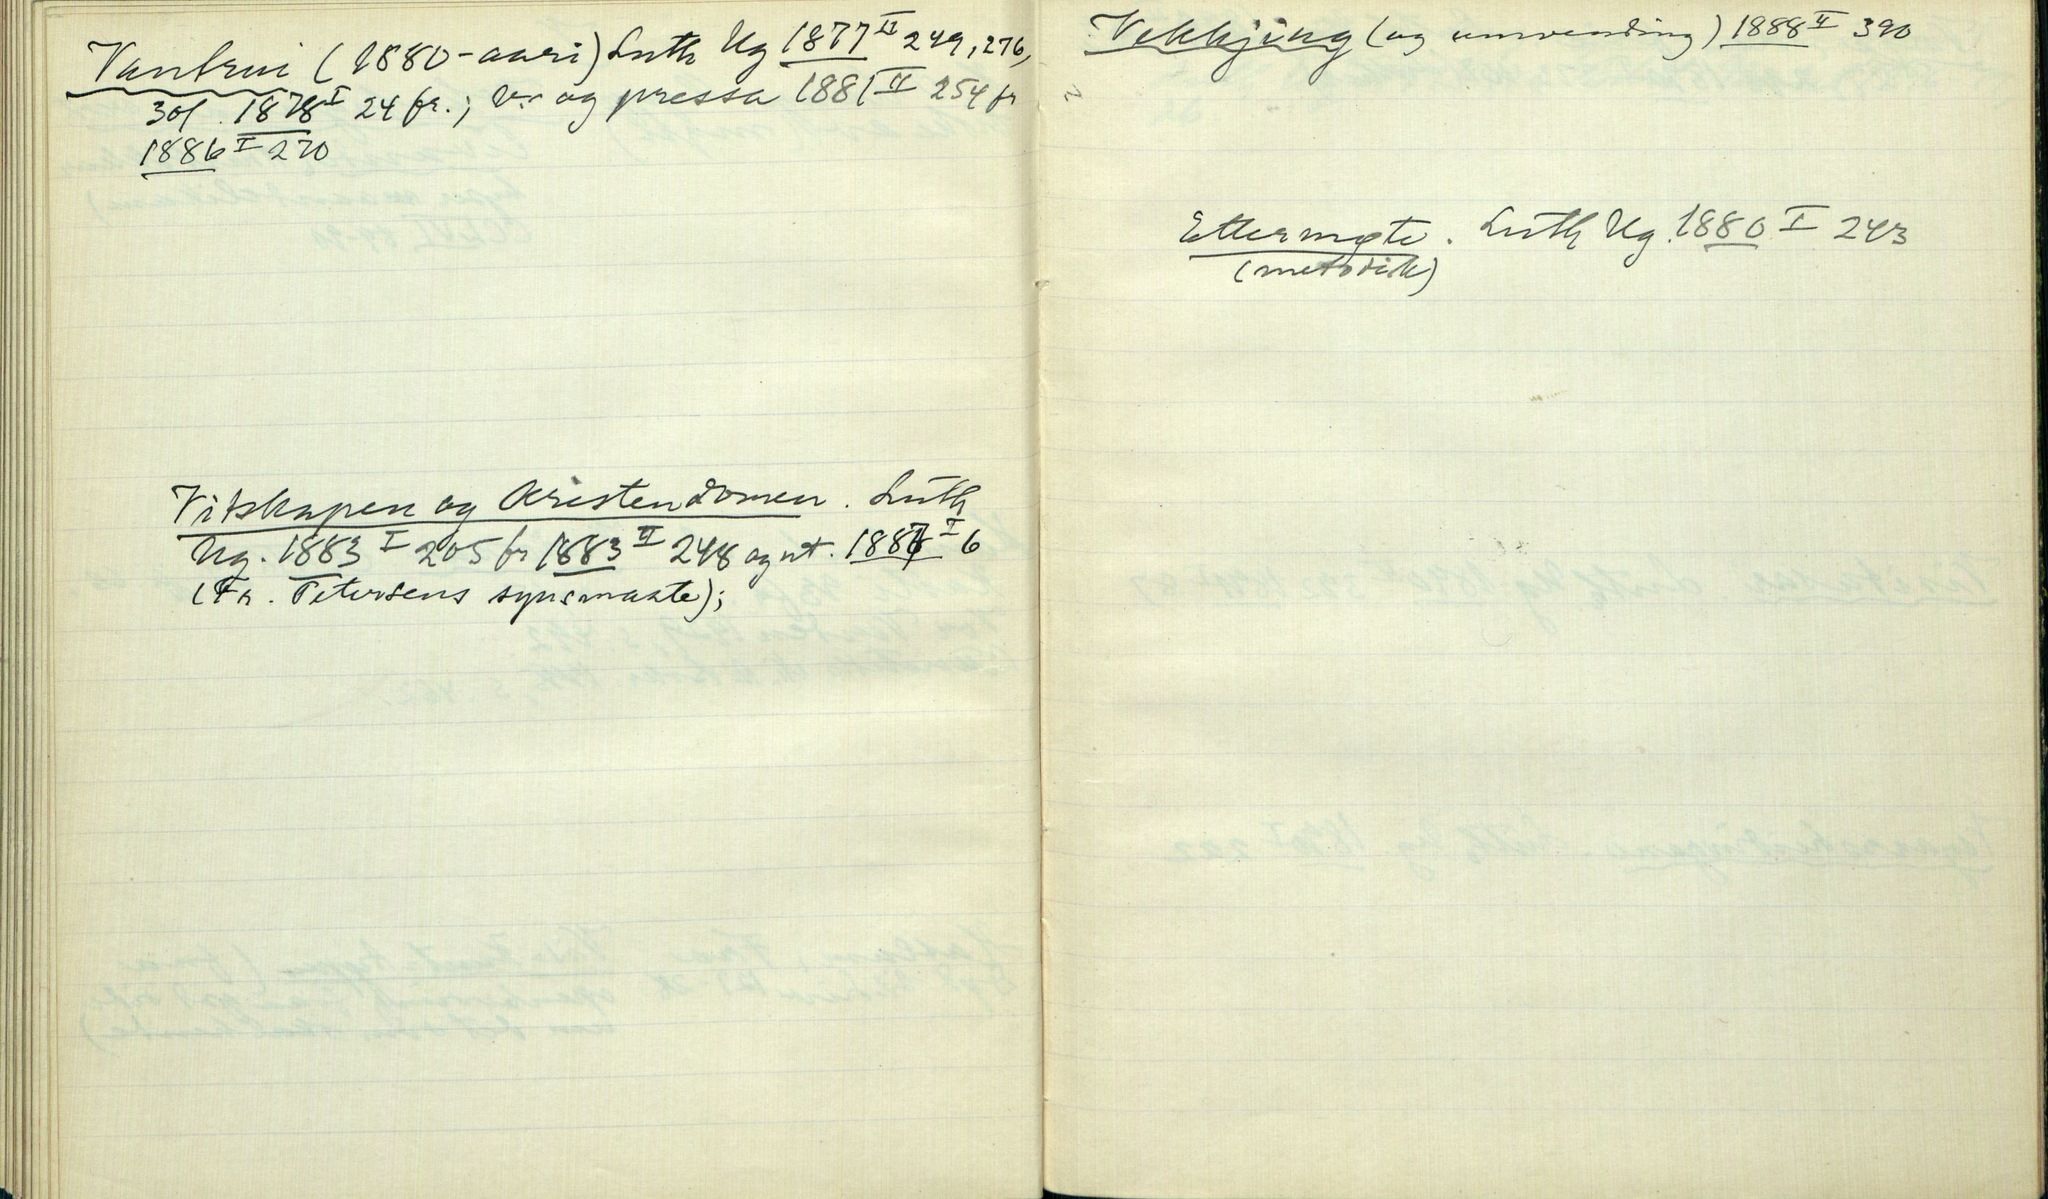 Vantrui (1880-aari) Luth Ug 1877 II 249, 276,
301. 1878 I 24 fr.; V. og pressa 1881 II 254 fr
1886 I 270
Vitskapen og Kristendomen. Luth
Ug. 1883 I 205 fr 1883 II 248 og ut. 1887 I 6
(Fr. Petersens synsmaate);
Vekkjing (og umvending) 1888 II 390
Ettermøte. Luth Ug. 1880 I 243
(metodisk)